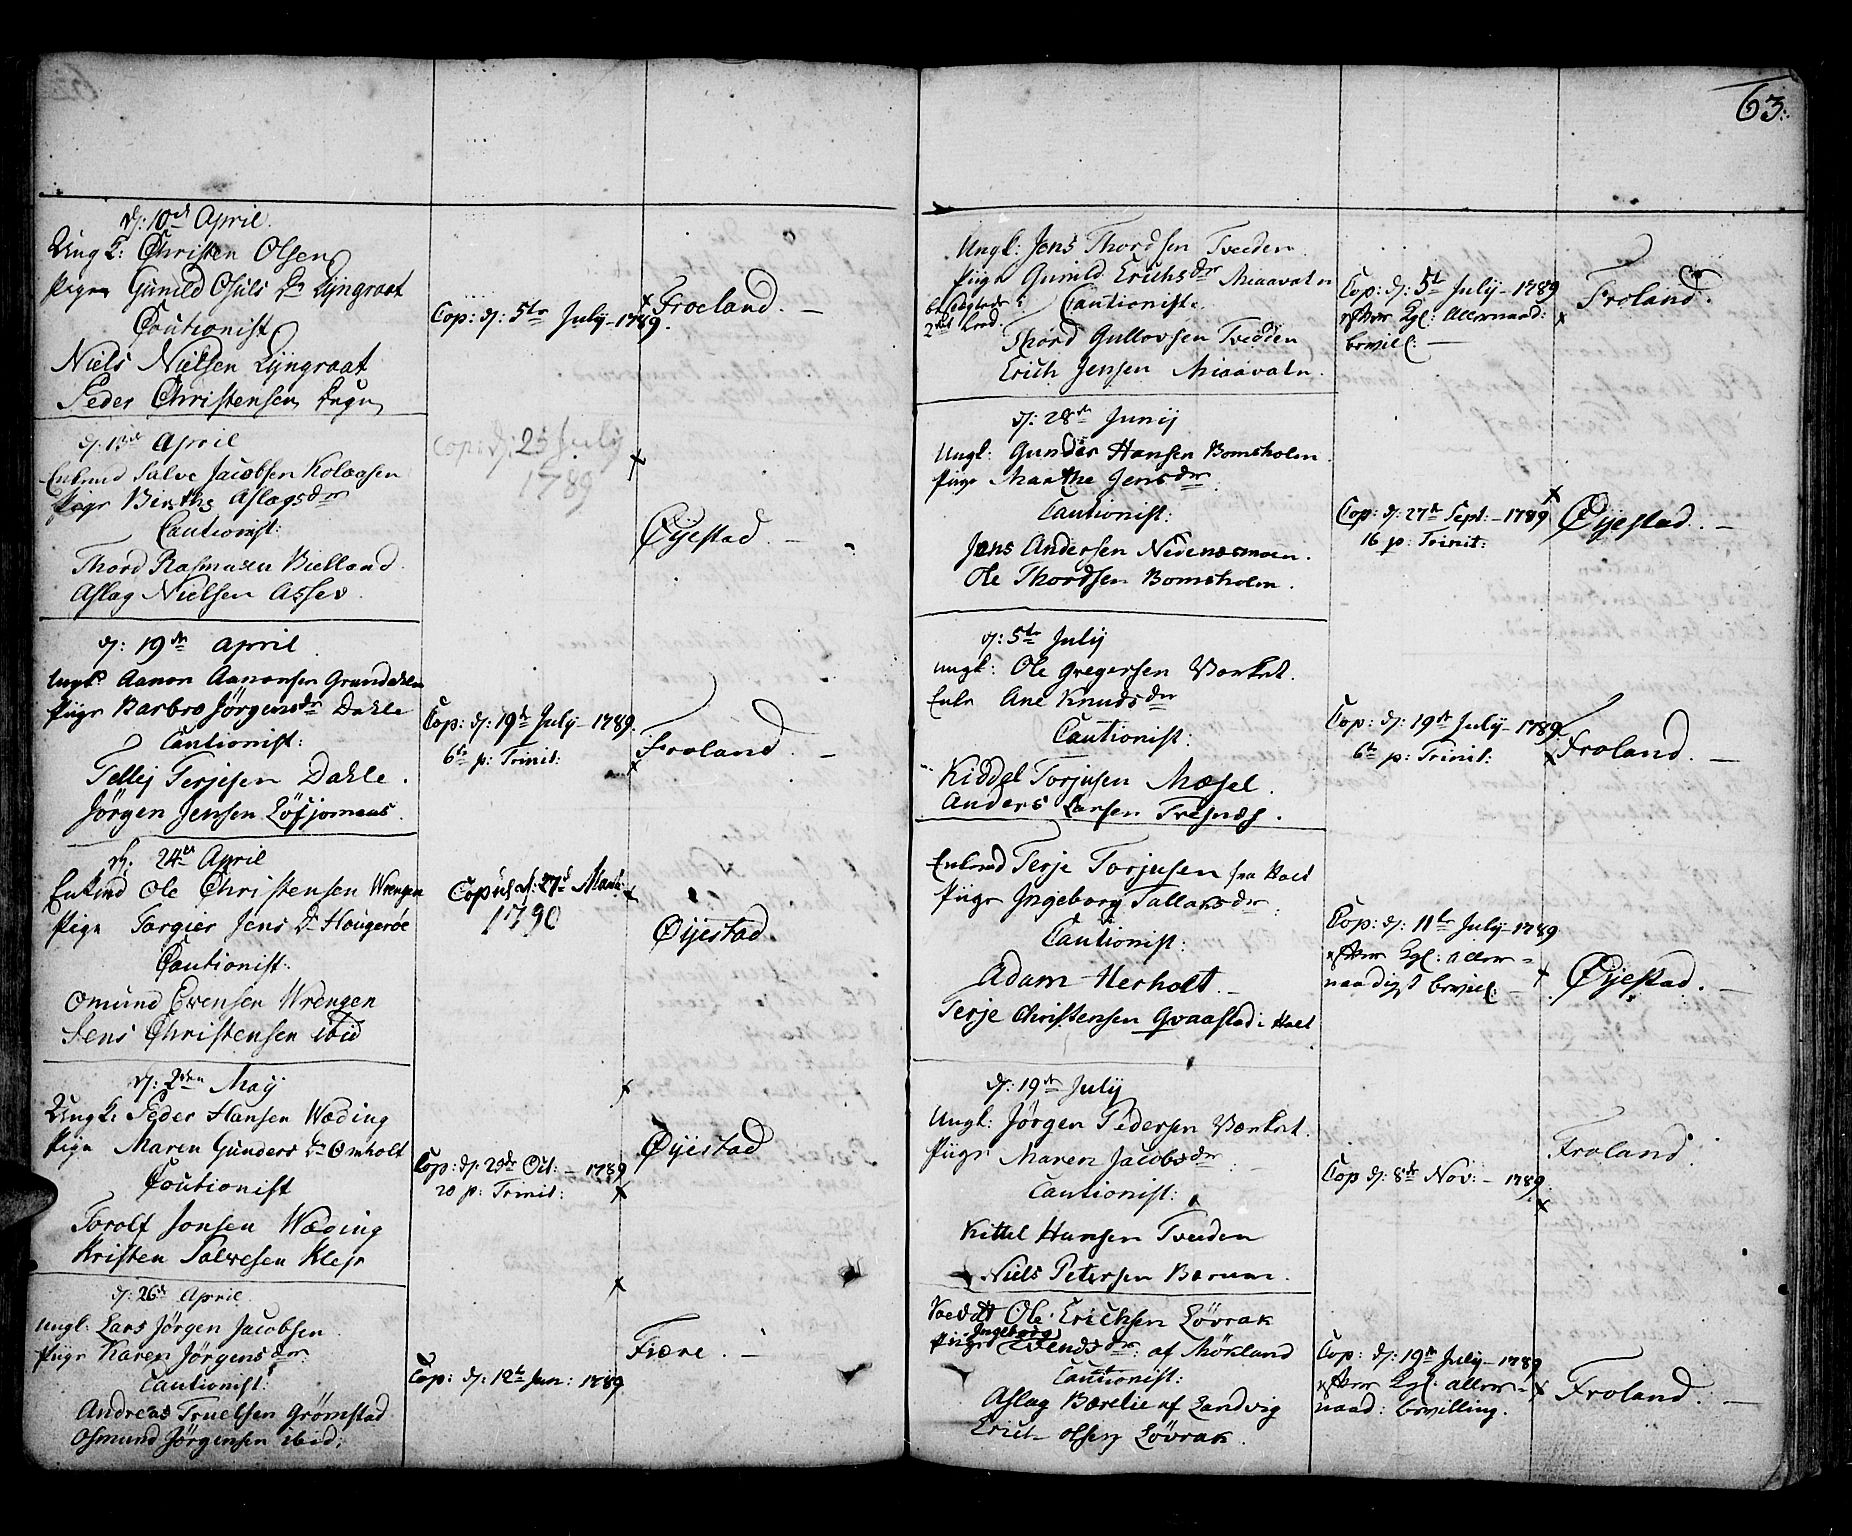 63.
d: 10de April
Ungk: Christen Olsen
Pigen Gunild Osuls Dr Lyngraat
Coutionist
Niels Nielsen Lyngraat
Peder Christensen
Cop: d: 5te July 1789.
Froeland. —
d: 13de April
Enkmd Salve Jacobsen Kolaasen
Pige Birthe Aslagsdr
Cautionist:
Thord Rasmusen Bielland.
Aslag Nielsen Assev.
Cop: d: 25 July
1789
Øijestad. —
d: 19de April
Ungk: Aanon Aanonsen Grundahlen
Piige Barbro Jörgensdr Dahle
Cautionist:
Tellej Terjesen Dahle.
Jörgen Jensen Löfjomaas.
Cop: d: 19de July 1789.
6te p: Trinit:
Froland. —
d. 24de April
Enkmd Ole Christensen Wrengen
Pigen Torgier Jens Dr Hougerøe
Cautionist:
Omund Evensen Wrengen
Jens Christensen ibid
Copul d: 27d Martz
1790
Øijestad.
d: 2den Maij
Ungk: Peder Hansen Wæding
Pige Maren Gunders Dr Omholt
Coutionist
Torolf Jonsen Wæding
Kristen Salvesen Klefr
Cop: d: 25de Oct: – 1789
20 p: Trinit:
Øijestad
d: 26de April
Ungk: Lars Jörgen Jacobsen
Piige Karen Jörgensdr
Cautionist:
Andreas Truelsen Grömstad
Osmund Jörgensen ibid:
Cop: d: 12te Jun: 1789
Fiære. —
Ungk: Jens Thordsen Tveden
Piige Gunild Erichsdr Miaavatn
beslægtede i Cautionist.
2det Leed.
Thord Gullovsen Tvedden
Erich Jensen Miaavatn.
Cop: d: 5te July – 1789
efter Kgl: Allernaad:
bevill: —
Froland.
d: 28de Junij
Ungk: Gunder Hansen Bomsholm.
Piige Marthe Jensdr.
Cautionist:
Jens Andersen Nedenesmoen.
Ole Thordsen Bomsholm.
Cop: d: 27de Sept: – 1789
16 p: Trinit:
Øijestad. —
d: 5te July
Ungk: Ole Gregersen Værket.
Enke Ane Knudsdr
Cautionist:
Kiddel Torjusen Mæsel.
Anders Larsen Tresnæs.
Cop: d: 19de July – 1789.
6te p: Trinit:
Froland. —
Enkmd Terje Torjusen fra Holt
Piige Ingeborg Tallaksdr.
Cautionist:
Adam Herholt. —
Terje Christensen Qvaastad i Holt
Cop: d: 11te July – 1789
efter Kgl: aller =
naadigst bevill: —
Øijestad. —
d: 19de July
Ungk: Jörgen Pedersen Værket.
Piige Maren Jacobsdr.
Cautionist:
Kittel Hansen Tveden
Niels Petersen Bærum.
Cop d: 8de Nov: – 1789.
Froland.
Ole Erichsen Lövrak
Ingeborg
Piige Evensdr: af Mökland
Cautionist:
Aslag Bærelie af Landvig
Erich Olsen Lövrak.
Cop: d: 19de July – 1789
efter Kgl: aller =
naad: bevilling.
Froland. —